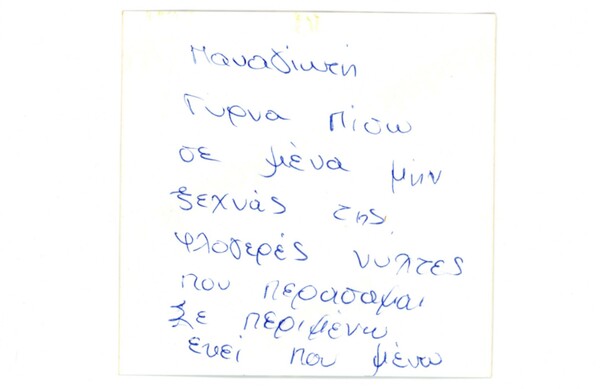 Παναγιωτη
Γυρνα πίσω
σε μένα μην
ξεχνάς της
φλογερές νυχτες
που περάσαμαι
Σε περιμένω
εκεί που μένω